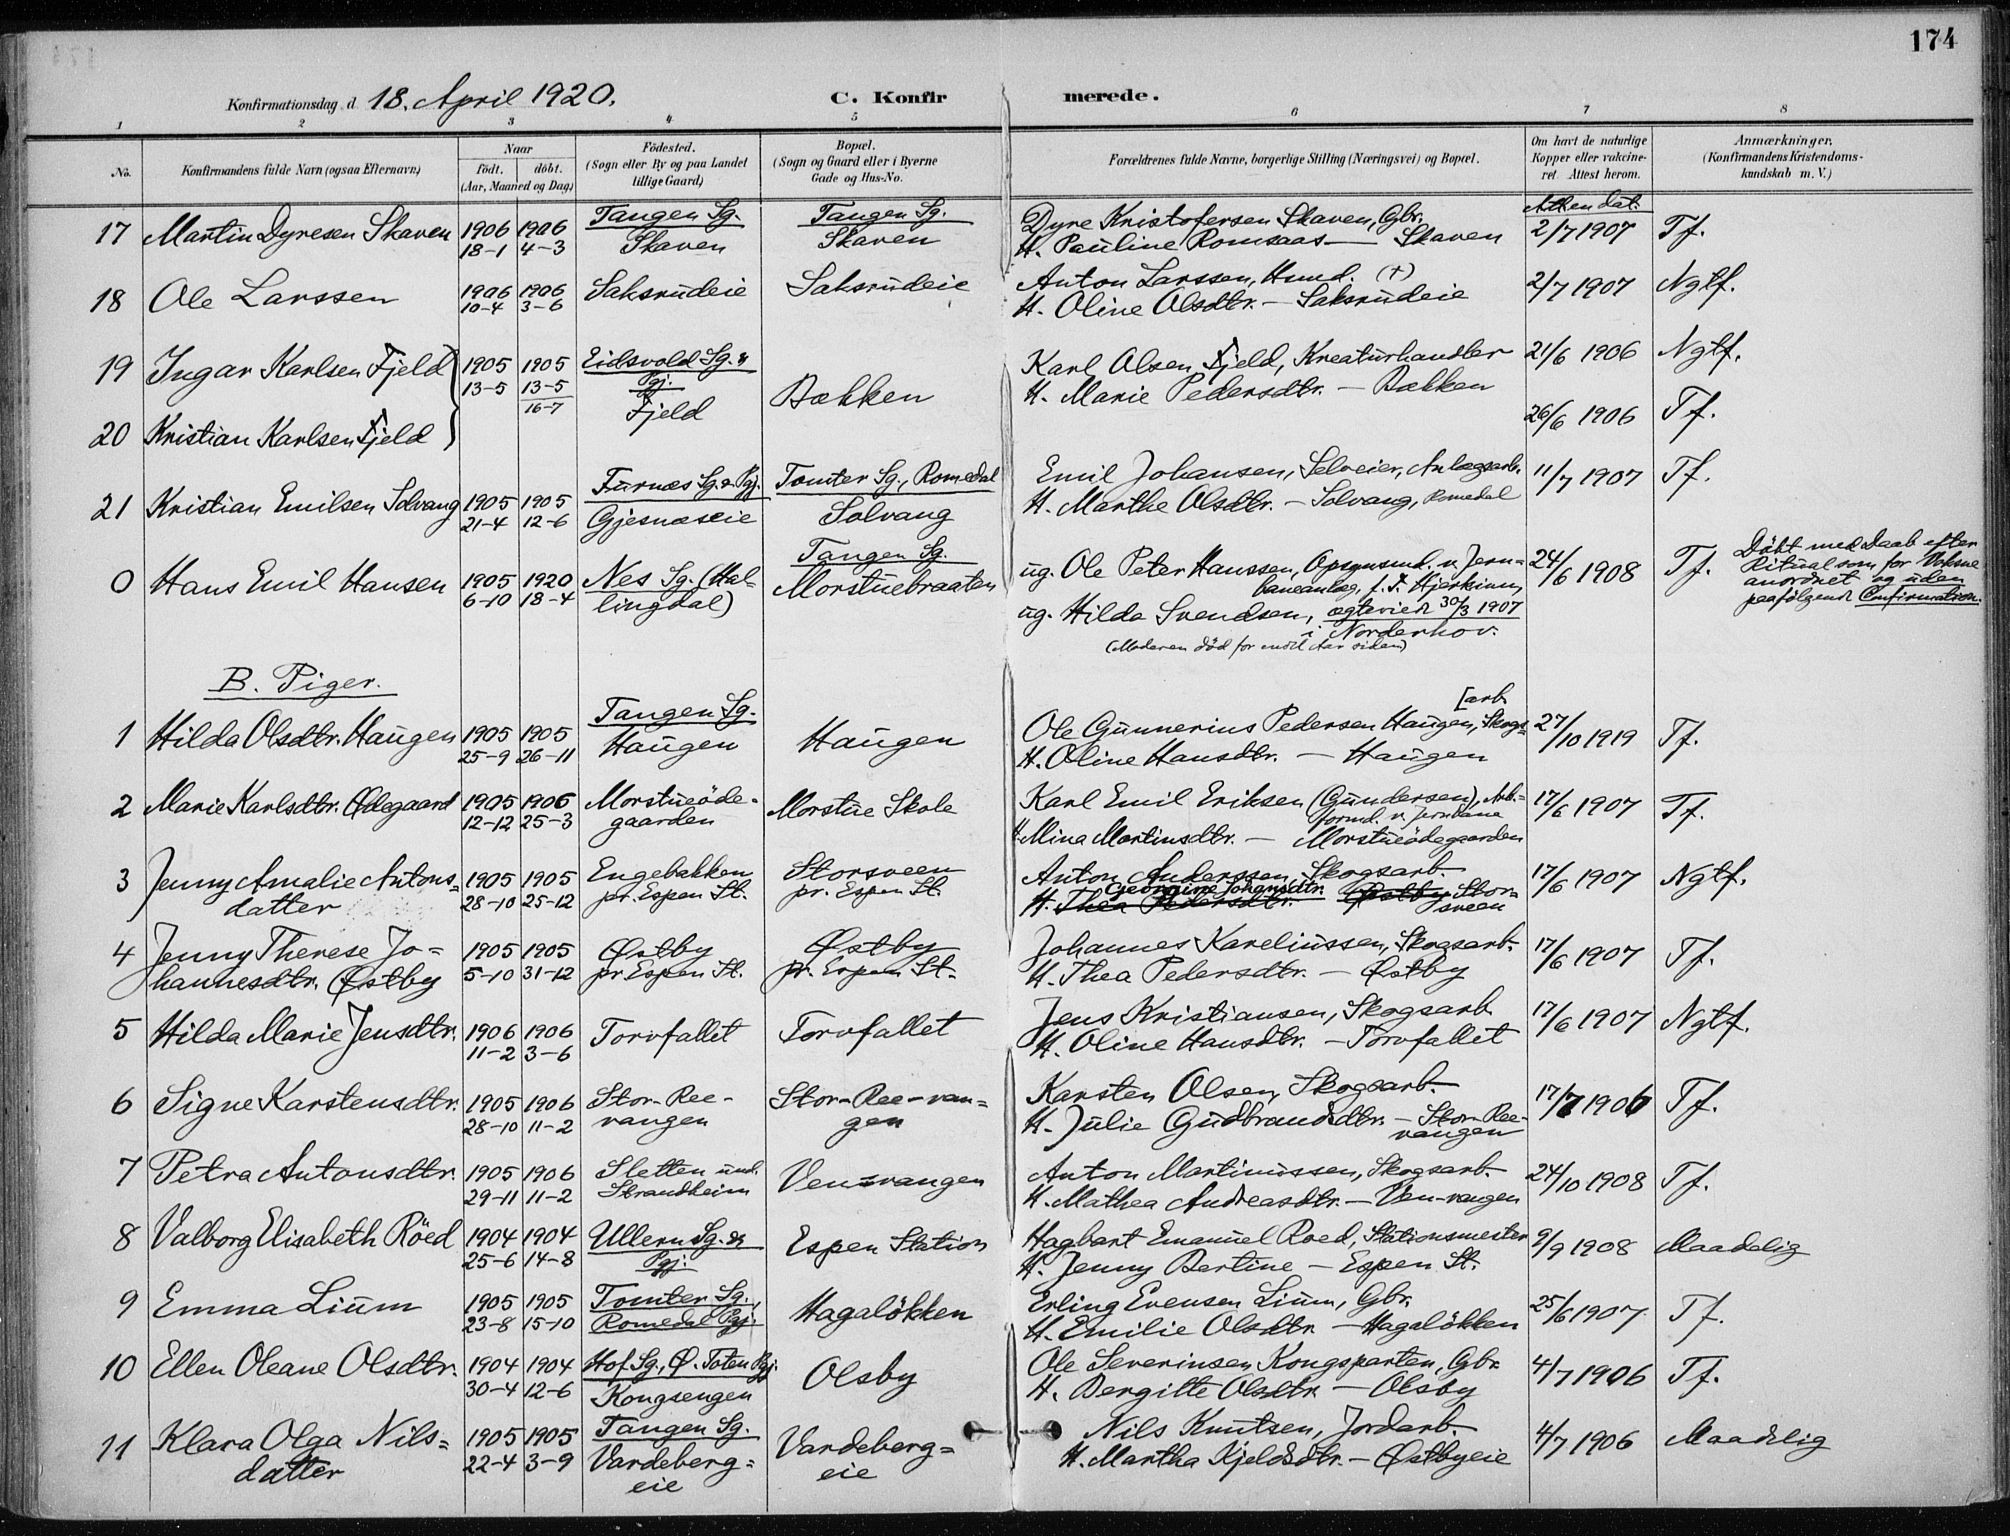 174
Konfirmationsdag d. 18. April 1920. C. Konfirmerede.
1 2 3 4 5 6 7 8
No. Konfirmandens fulde Navn (ogsaa Efternavn.) Naar födt. döbt. (Aar, Maaned og Dag) Födested. (Sogn eller By og paa Landet tillige Gaard) Bopæl. (Sogn og Gaard eller i Byerne Gade og Hus-No. Forældrenes fulde Navne, borgerlige Stilling (Næringsvei) og Bopæl. Om havt de naturlige Kopper eller vakcineret Attest herom. Anmærkninger, (Konfirmandens Kristendomskundskab m. V.)
17 Martin Dyresen Skaven 1906 1906 Tangen Sg. Tangen Sg. Dyre Kristofersen Skaven, Gbr. 2/7 1907 Tf.
18-1 4-3 Skaven Skaven H. Pauline Romsaas — Skaven
18 Ole Larssen 1906 1906 Saksrudeie Saksrudeie Anton Larssen, Husmd. (+) 2/7 1907 Ngtf.
10-4 3-6 H. Oline Olsdtr. — Saksrudeie
19 Ingar Karlsen Fjeld 1905 1905 Eidsvold Sg. & Karl Olsen Fjeld, Kreaturhandler 21/6 1906 Ngtf.
13-5 13-5 Pgj. Bækken H. Marie Pedersdtr. — Bækken
16-7 Fjeld
20 Kristian Karlsen Fjeld 26/6 1906 Tf.
21 Kristian Emilsen Solvang 1905 1905 Furnæs Sg. & Pgj. Tomter Sg., Romedal Emil Johansen, Selveier, Anlægsarb. 11/7 1907 Tf.
21-4 12-6 Gjesnæseie Solvang H. Marthe Olsdtr. — Solvang, Romedal
0 Hans Emil Hansen 1905 1920 Nes Sg. (Hal- Tangen Sg. ug. Ole Peter Hanssen, Opsynsmd. v. Jern- 24/6 1908 Tf. Döbt med Daab efter
6-10 18-4 lingdal) Morstuebraaten baneanlæg, f. T. Hjerkinn, Ritual som for Voksne
ug. Hilda Svendsen, ægteviet 30/3 1907 anordnet og uden
i Norderhov. paafölgende Confirmation.
(Moderen död for endel Aar siden)
B. Piger.
1 Hilda Olsdtr. Haugen 1905 1905 Tangen Sg. Haugen Ole Gunnerius Pedersen Haugen, Skogs- [arb. 27/10 1919 Tf.
25-9 26-11 Haugen H. Oline Hansdtr. — Haugen
2 Marie Karlsdtr. Ødegaard 1905 1906 Morstueöde- Morstue Skole Karl Emil Eriksen (Gundersen), Arb.- 17/6 1907 Tf.
12-12 25-3 gaarden formd. v. Jernbane
H. Mina Martinsdtr. — Morstueödegaarden
3 Jenny Amalie Antons- 1905 1905 Engebakken Storsveen Anton Anderssen, Skogsarb. 17/6 1907 Ngtf.
datter 28-10 25-12 pr. Espen St. pr. Espen St. Georgine Johansdtr.
H. Thea Pedersdtr. Østby Storsveen
4 Jenny Therese Jo- 1905 1905 Østby Østby Johannes Kareliussen, Skogsarb. 17/6 1907 Tf.
hannesdtr. Østby 5-10 31-12 pr Espen St. pr. Espen St. H. Thea Pedersdtr. — Østby
5 Hilda Marie Jensdtr. 1906 1906 Torvfallet Torvfallet Jens Kristiansen, Skogsarb. 17/6 1907 Ngtf.
11-2 3-6 H. Oline Hansdtr. — Torvfallet
6 Signe Karstensdtr. 1905 1906 Stor-Ree- Stor-Ree-van- Karsten Olsen, Skogsarb. 17/7 1906 Tf.
28-10 11-2 vangen gen H. Julie Gudbrandsdtr. — Stor-Ree-
vangen
7 Petra Antonsdtr. 1905 1906 Sletten und. Venvangen Anton Martinussen, Skogsarb. 24/10 1908 Tf.
29-11 11-2 Strandheim H. Mathea Andreasdtr. — Ven-vangen
8 Valborg Elisabeth Röed 1904 1904 Ullern Sg. & Espen Station Hagbart Emanuel Roed, Stationsmester 9/9 1908 Maadelig
25-6 14-8 Pgj. H. Jenny Bertine — Espen St.
9 Emma Lium 1905 1905 Tomter Sg., Hagalökken Erling Evensen Lium, Gbr. 25/6 1907 Tf.
23-8 15-10 Romedal Pgj. H. Emilie Olsdtr — Hagalökken
10 Ellen Oleane Olsdtr. 1904 1904 Hof Sg., Ø. Toten Pgj. Olsby Ole Severinsen Kongsparten, Gbr. 4/7 1906 Tf.
30-4 12-6 Kongsengen H. Bergitte Olsdtr. — Olsby
11 Klara Olga Nils- 1905 1905 Tangen Sg. Vardeberg- Nils Knutsen, Jordarb. 4/7 1906 Maadelig
datter 22-4 3-9 Vardeberg- eie H. Martha Kjeldsdtr. — Østbyeie
eie